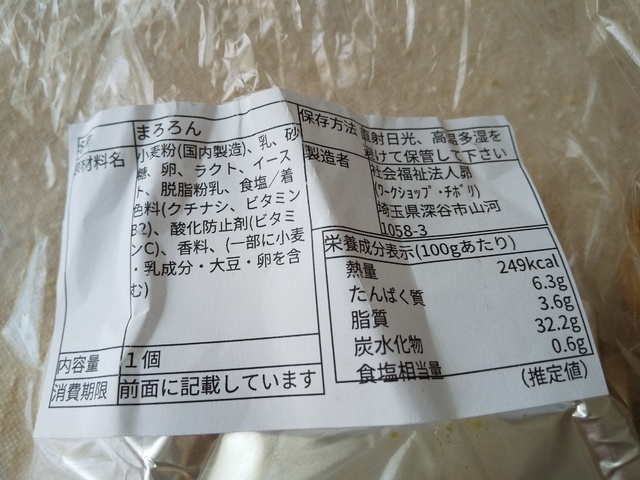 まろろん
原材料名
小麦粉(国内製造)、乳、砂
糖、卵、ラクト、イース
ト、脱脂粉乳、食塩/着
色料(クチナシ、ビタミン
B2)、酸化防止剤(ビタミ
ンC)、香料、(一部に小麦
・乳成分・大豆・卵を含
む)
内容量 1個
消費期限 前面に記載しています
保存方法 直射日光、高温多湿を
避けて保管して下さい
製造者
社会福祉法人昴
(ワークショップ・チボリ)
埼玉県深谷市山河
1058-3
栄養成分表示(100gあたり)
熱量 249kcal
たんぱく質 6.3g
脂質 3.6g
炭水化物 32.2g
食塩相当量 0.6g
(推定値)